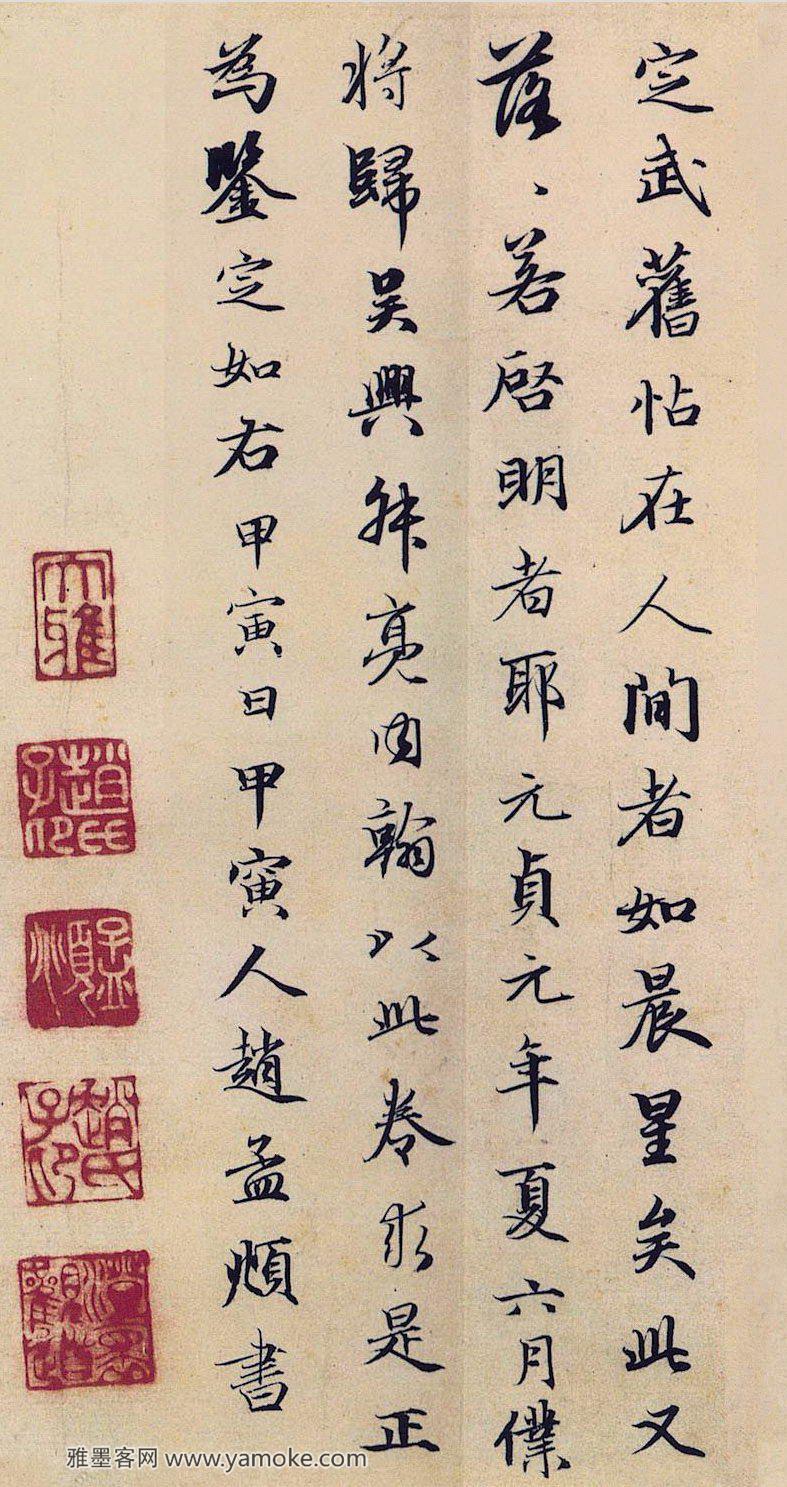 定武舊帖在人間者如晨星矣此又
落〻若啓明者耶元貞元年夏六月僕
將歸吳興叔亮內翰以此卷求是正
為鑒定如右甲寅日甲寅人趙孟頫書
大雅
趙氏子昂
趙氏子昂
雅墨客网 www.yamoke.com